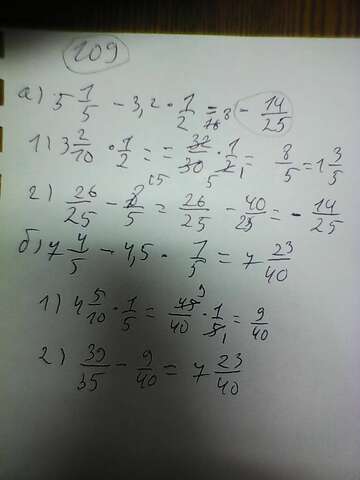 109
а) 5 1/5 - 3,2 · 1/2 = - 14/25
1) 3 2/10 · 1/2 = = 32/30 · 1/2 = 8/5 = 1 3/5
2) 26/25 - 8/5 = 26/25 - 40/25 = - 14/25
б) 7 4/5 - 4,5 · 1/5 = 7 23/40
1) 4 5/10 · 1/5 = 45/40 · 1/5 = 9/40
2) 39/35 - 9/40 = 7 23/40